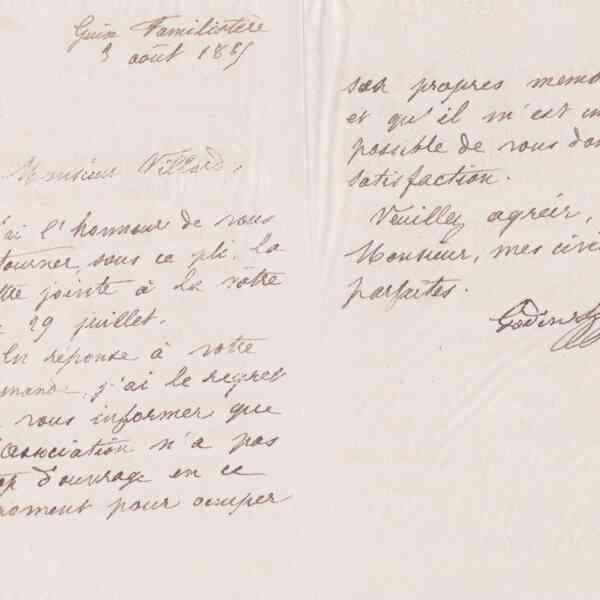 Guise Familistère
3 août 1885
Monsieur Villard,
'ai l'honneur de vous
tourner, sous ce pli, la
ttre jointe à la vôtre
29 juillet.
En réponse à votre
mande, j'ai le regret
vous informer que
'association n'a pas
op d'ouvrage en ce
moment pour occuper
ses propres memb
et qu'il m'est im
possible de vous don
satisfaction.
Veuillez agréer,
Monsieur, mes civi
parfaites.
Godin